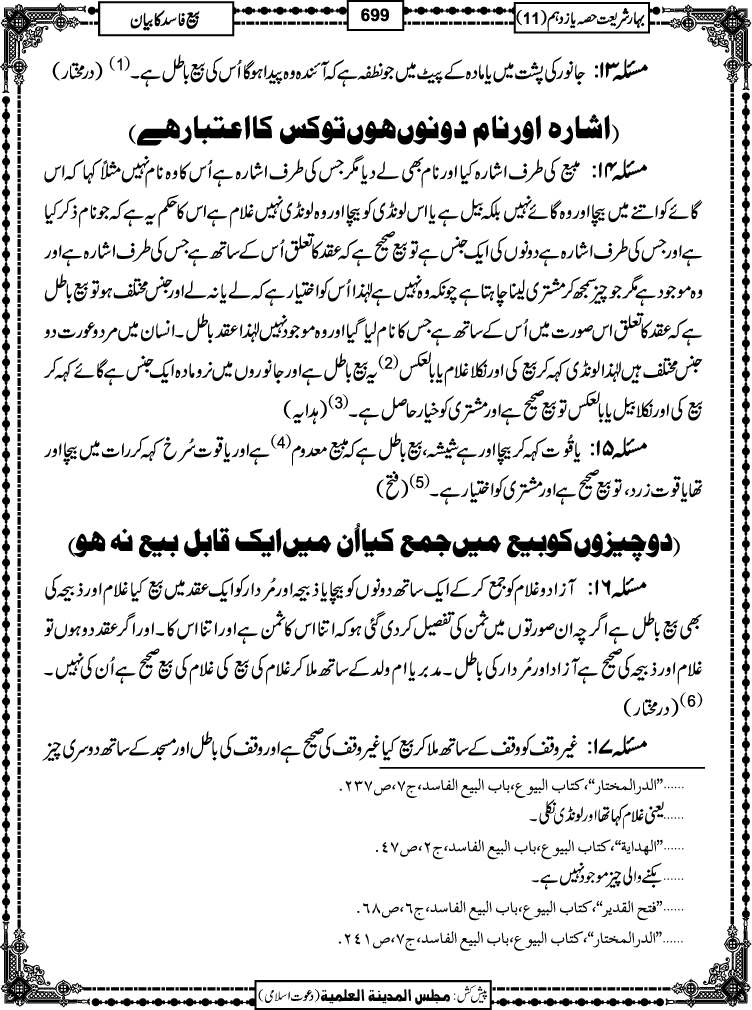 بہار شریعت حصہ یازدہم (11)
699
بیع فاسد کا بیان
مسئلہ ۱۳: جانور کی پشت میں یا مادہ کے پیٹ میں جو نطفہ ہے کہ آئندہ وہ پیدا ہوگا اُس کی بیع باطل ہے۔ (1) (درمختار)
(اشارہ اور نام دونوں ہوں تو کس کا اعتبار ہے)
مسئلہ ۱۴: مبیع کی طرف اشارہ کیا اور نام بھی لے دیا مگر جس کی طرف اشارہ ہے اُس کا وہ نام نہیں مثلاً کہا کہ اس
گائے کو اتنے میں بیچا اور وہ گائے نہیں بلکہ بیل ہے یا اس لونڈی کو بیچا اور وہ لونڈی نہیں غلام ہے اس کا حکم یہ ہے کہ جو نام ذکر کیا
ہے اور جس کی طرف اشارہ ہے دونوں کی ایک جنس ہے تو بیع صحیح ہے کہ عقد کا تعلق اُس کے ساتھ ہے جس کی طرف اشارہ ہے اور
وہ موجود ہے مگر جو چیز سمجھ کر مشتری لینا چاہتا ہے چونکہ وہ نہیں ہے لہٰذا اُس کو اختیار ہے کہ لے یا نہ لے اور جنس مختلف ہو تو بیع باطل
ہے کہ عقد کا تعلق اس صورت میں اُس کے ساتھ ہے جس کا نام لیا گیا اور وہ موجود نہیں لہٰذا عقد باطل۔ انسان میں مرد و عورت دو
جنس مختلف ہیں لہٰذا لونڈی کہہ کر بیع کی اور نکلا غلام یا بالعکس (2) یہ بیع باطل ہے اور جانوروں میں نر و مادہ ایک جنس ہے گائے کہہ کر
بیع کی اور نکلا بیل یا بالعکس تو بیع صحیح ہے اور مشتری کو خیار حاصل ہے۔ (3) (ہدایہ)
مسئلہ ۱۵: یاقُوت کہہ کر بیچا اور ہے شیشہ، بیع باطل ہے کہ مبیع معدوم (4) ہے اور یاقوت سُرخ کہہ کر رات میں بیچا اور
تھا یاقوت زرد، تو بیع صحیح ہے اور مشتری کو اختیار ہے۔ (5) (فتح)
(دو چیزوں کو بیع میں جمع کیا اُن میں ایک قابل بیع نہ ہو)
مسئلہ ۱۶: آزاد و غلام کو جمع کر کے ایک ساتھ دونوں کو بیچا یا ذبیحہ اور مُردار کو ایک عقد میں بیع کیا غلام اور ذبیحہ کی
بھی بیع باطل ہے اگرچہ ان صورتوں میں ثمن کی تفصیل کر دی گئی ہو کہ اتنا اس کا ثمن ہے اور اتنا اس کا۔ اور اگر عقد دو ہوں تو
غلام اور ذبیحہ کی صحیح ہے آزاد اور مُردار کی باطل۔ مدبر یا ام ولد کے ساتھ ملا کر غلام کی بیع کی غلام کی بیع صحیح ہے اُن کی نہیں۔
(6) (درمختار)
مسئلہ ۱۷: غیر وقف کو وقف کے ساتھ ملا کر بیع کیا غیر وقف کی صحیح ہے اور وقف کی باطل اور مسجد کے ساتھ دوسری چیز
......"الدرالمختار"، کتاب البیوع، باب البیع الفاسد، ج۷، ص۲۳۷.
......یعنی غلام کہا تھا اور لونڈی نکلی۔
......"الهداية"، کتاب البیوع، باب البیع الفاسد، ج۲، ص۴۷.
......بکنے والی چیز موجود نہیں ہے۔
......"فتح القدیر"، کتاب البیوع، باب البیع الفاسد، ج۶، ص۶۸.
......"الدرالمختار"، کتاب البیوع، باب البیع الفاسد، ج۷، ص۲۴۱.
پیش کش: مجلس المدينة العلمية (دعوت اسلامی)